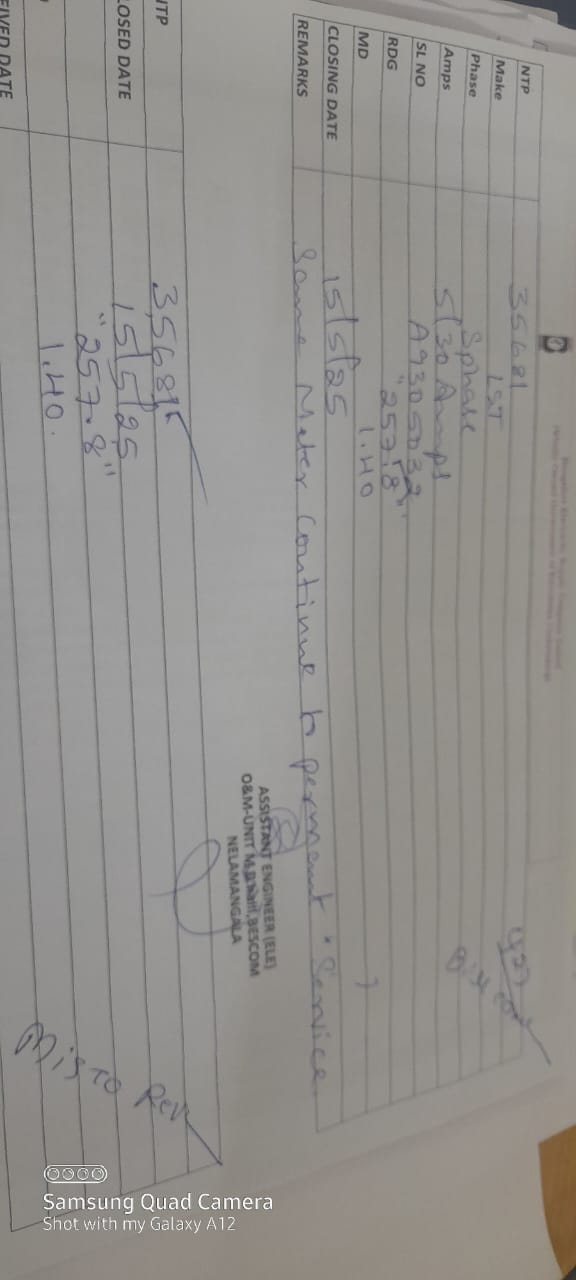 NTP 35681
Make LST
Phase 3phase
Amps 5/30 Amps
SL NO A9305032
RDG "257.8"
MD 1.40
CLOSING DATE 15/5/25
REMARKS Same Meter Continue to permant Service.
ASSISTANT ENGINEER (ELE)
O&M-UNIT BESCOM
NELAMANGALA
NTP 35681
LOSED DATE 15/5/25
"257.8"
1.40.
EIVED DATE
Samsung Quad Camera
Shot with my Galaxy A12